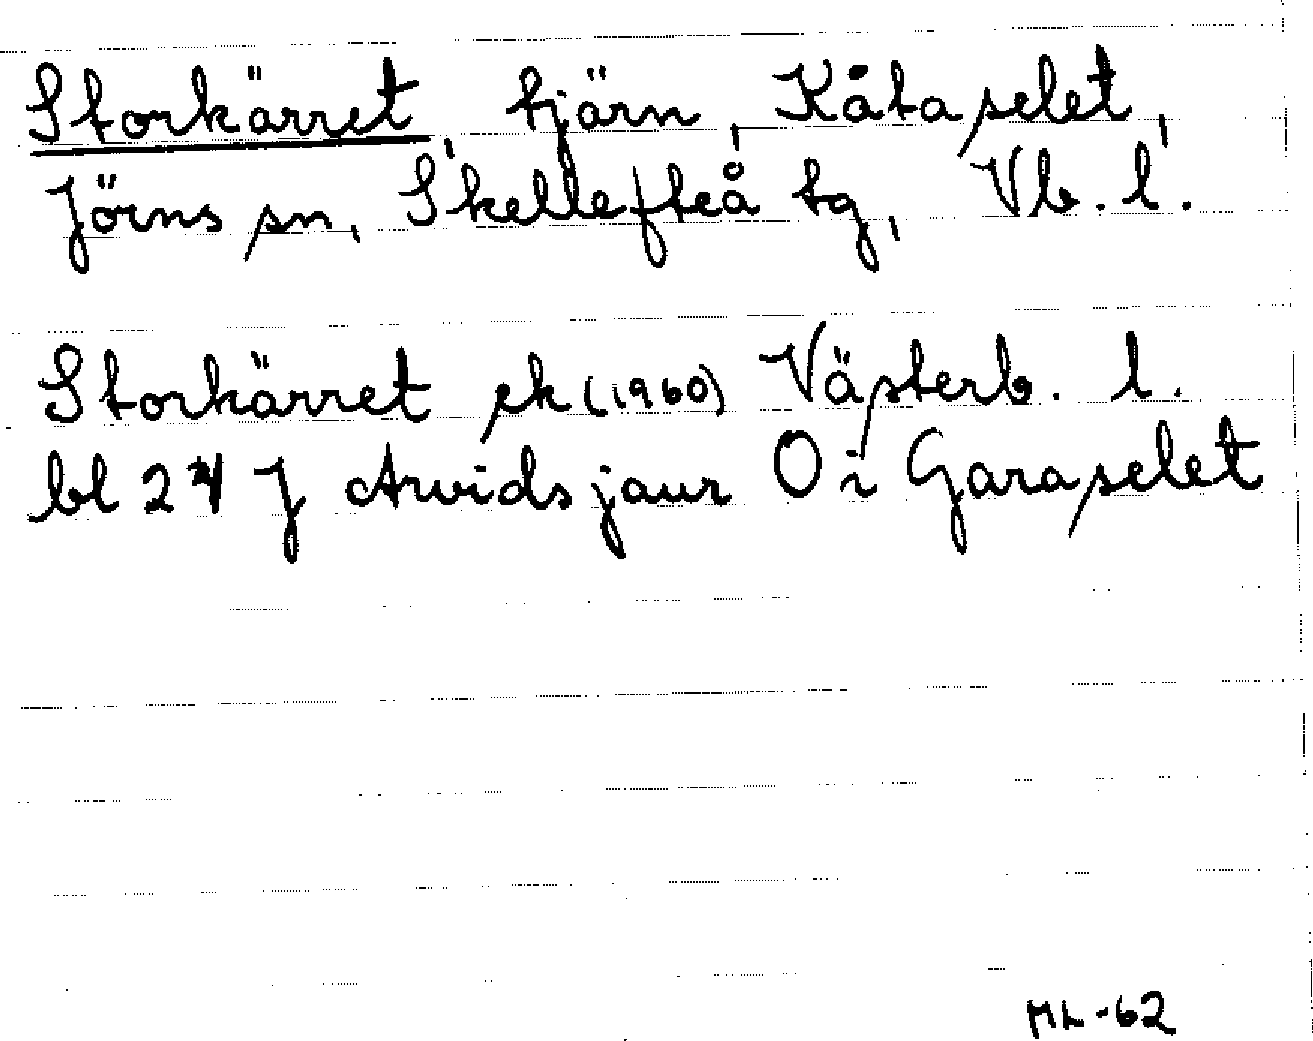 Storkärret, tjärn, Kåtaselet,
Jörns sn, Skellefteå tg, Vb. l.
Storkärret ek (1960) Västerb. l.
bl 24 J Arvidsjaur O i Garaselet
ML-62